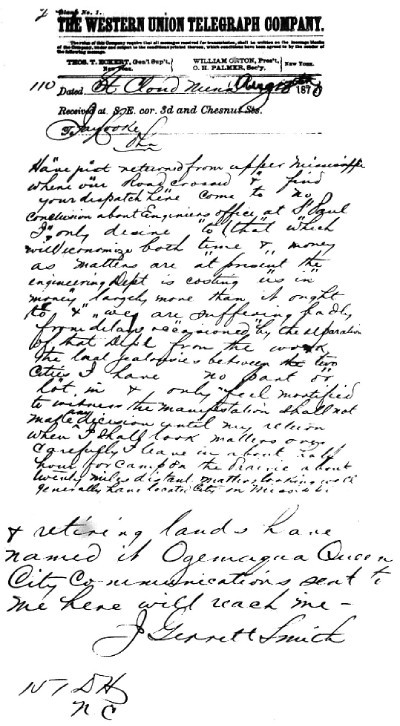 2
Blank No. 1.
THE WESTERN UNION TELEGRAPH COMPANY.
The rules of this Company require that all messages received for transmission, shall be written on the message blanks
of the Company, under and subject to the conditions printed thereon, which conditions have been agreed to by the sender of
the following message.
THOS. T. ECKERT, Gen'l Sup't, New York. WILLIAM ORTON, Pres't, O. H. PALMER, Sec'y, New York.
110 Dated St Cloud Minn Aug 187
Received at S. E. cor. 3d and Chesnut Sts.
To Jay Cooke
Pha
Have just returned from upper Mississippi
where our Road crossed & find
your dispatch here come to no
conclusion about Engineers office at St Paul
I only desire to that which
will economize both time & money
as matters are at present the
engineering Dept is costing us in
money largely more than it ought
to & we are suffering badly
from delays occasioned by the separation
of that Dept from the work
The local jealousies between the two
Cities I have no part or
lot in & only feel mortified
to witness the manifestation shall not
make any decision until my return
when I shall look matters over
carefully I leave in about half
hour for camp on the prairie about
twenty miles distant matters looking well
generally have located City on Mississippi
& retiring lands have
named it Ogemaqua Queen
City Communications sent to
me here will reach me -
J Gerrett Smith
N C